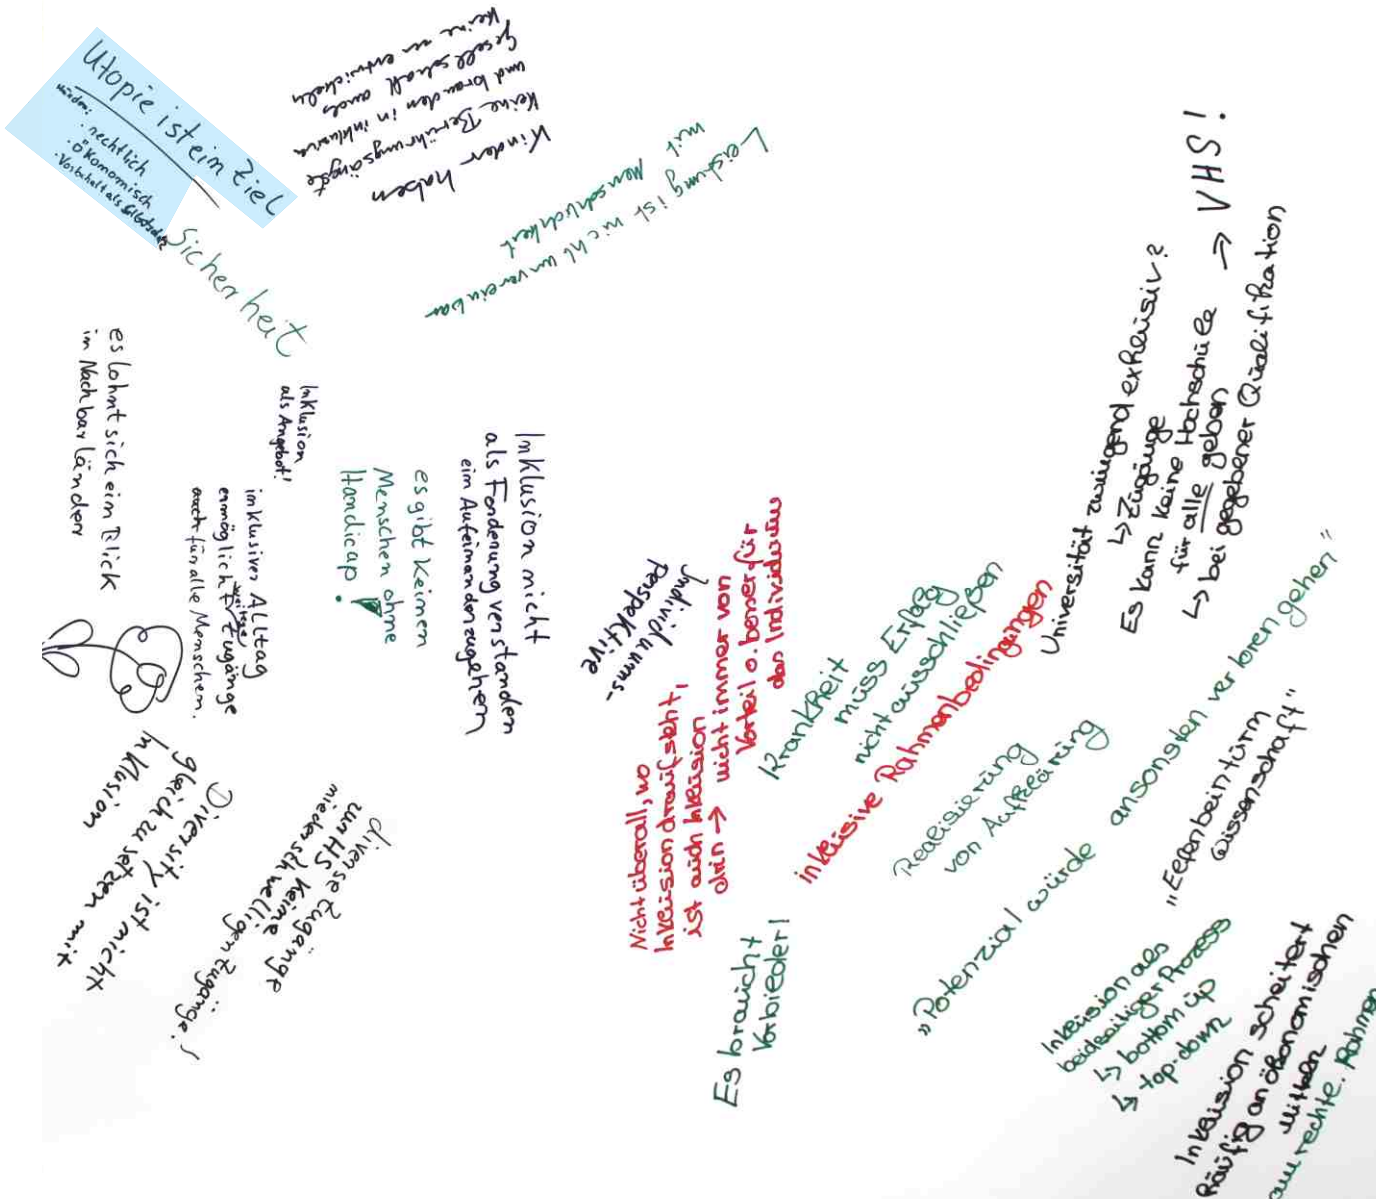 Utopie ist ein Ziel
Hürden:
· rechtlich
· Ökomomisch
· Vorbehalt als Selbstschutz
Sicherheit
Kinder haben
keine Berührungsängste
und brauchen in inklusiver
Gesellschaft auch
keine zu entwickeln
Leistung ist nicht unvereinbar
mit Menschlichkeit
es lohnt sich ein Blick
in Nachbarländer
Inklusion
als Angebot!
inklusiver Alltag
ermöglicht weitere Zugänge
auch für alle Menschen.
es gibt keinen
Menschen ohne
Handicap!
Inklusion nicht
als Forderung verstanden
ein Aufeinanderzugehen
Diversity ist nicht
gleichzusetzen mit
Inklusion
diverse Zugänge
zur HS keine
niederschwelligen Zugänge!
Individuums-
perspektive
Nicht überall, wo
Inklusion draufsteht,
ist auch Inklusion
drin → nicht immer von
Vorteil o. besser für
das Individuum
Krankheit
muss Erfolg
nicht ausschließen
inklusive Rahmenbedingungen
Es braucht
Vorbilder!
Realisierung
von Aufklärung
Universität zwingend exklusiv?
↳ Zugänge
Es kann keine Hochschule
für alle geben → VHS!
↳ bei gegebener Qualifikation
„Potenzial würde ansonsten verloren gehen"
„Elfenbeinturm
Wissenschaft"
Inklusion als
beidseitiger Prozess
↳ bottom up
↳ top-down
Inklusion scheitert
häufig an ökonomischen
Mitteln
am rechte. Rahmen